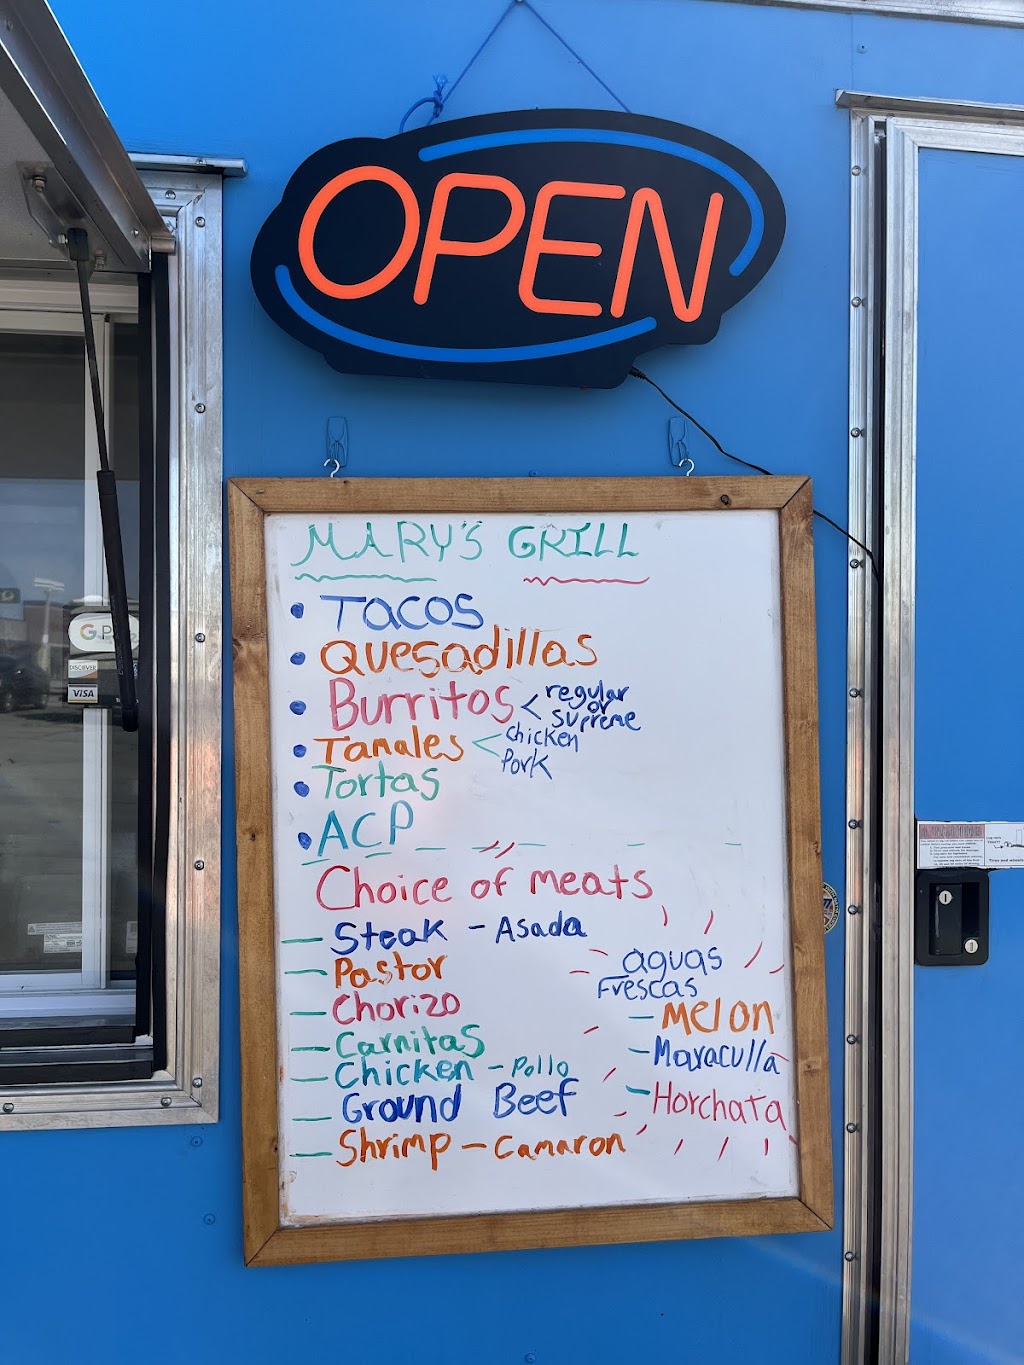 OPEN
MARY'S GRILL
• Tacos
• Quesadillas
• Burritos < regular or supreme
• Tamales < chicken Pork
• Tortas
• ACP
Choice of meats
— Steak - Asada
— Pastor
— Chorizo
— Carnitas
— Chicken - Pollo
— Ground Beef
— Shrimp - Camaron
aguas
Frescas
- Melon
- Maraculla
- Horchata
G Pay
DISCOVER
VISA